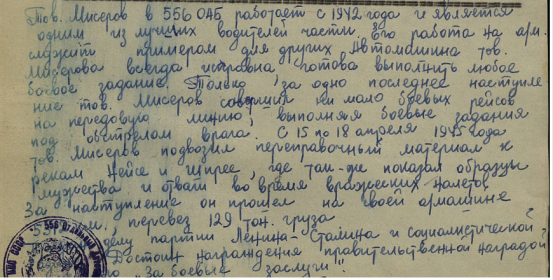 Тов. Мисеров в 556 ОАБ работает с 1942 года и является
одним из лучших водителей части. Его работа на а/м.
служит примером для других Автомашина тов.
Мисерова всегда исправна готова выполнить любое
боевое задание. Только за одно последнее наступле
ние тов. Мисеров совершил не мало боевых рейсов
на передовую линию, выполняя боевые задания
под обстрелом врага. С 15 по 18 апреля 1945 года
тов. Мисеров подвозил переправочный материал к
рекам Нейсе и Шпрее, где так-же показал образцы
мужества и отваги во время вражеских налетов
За наступление он прошел на своей а/машине
перевез 129 тон. груза
делу партии Ленина-Сталина и социалистической
Достоин награждения правительственной наградой
"За боевые заслуги"